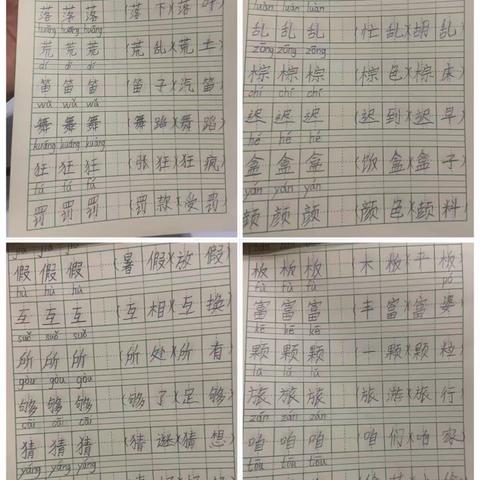 落 落 落 (落 下)(落 叶)
huāng huāng huāng
荒 荒 荒 (荒 乱)(荒 土)
dí dí dí
笛 笛 笛 (笛 子)(汽 笛)
wǔ wǔ wǔ
舞 舞 舞 (舞 蹈)(舞 蹈)
kuáng kuáng kuáng
狂 狂 狂 (张 狂)(狂 疯)
fá fá fá
罚 罚 罚 (罚 款)(受 罚)
luàn luàn luàn
乱 乱 乱 (忙 乱)(胡 乱)
zōng zōng zōng
棕 棕 棕 (棕 色)(棕 床)
chí chí chí
迟 迟 迟 (迟 到)(迟 早)
hé hé hé
盒 盒 盒 (饭 盒)(盒 子)
yán yán yán
颜 颜 颜 (颜 色)(颜 料)
假 假 假 (暑 假)(放 假)
hù hù hù
互 互 互 (互 相)(互 换)
suǒ suǒ suǒ
所 所 所 (所 处)(所 有)
gòu gòu gòu
够 够 够 (够 了)(足 够)
cāi cāi cāi
猜 猜 猜 (猜 谜)(猜 想)
yáng yáng yáng
板 板 板 (木 板)(平 板)
fù fù fù pó
富 富 富 (丰 富)(富 婆)
kē kē kē
颗 颗 颗 (一 颗)(颗 粒)
旅 旅 旅 (旅 游)(旅 行)
zán zán zán
咱 咱 咱 (咱 们)(咱 家)
tōu tōu tōu